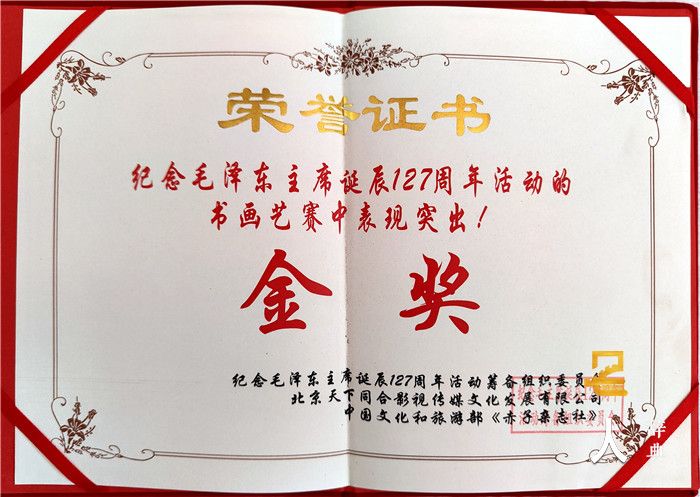 荣誉证书
纪念毛泽东主席诞辰127周年活动的
书画艺赛中表现突出！
金奖
纪念毛泽东主席诞辰127周年活动筹备组织委员会
北京天下同合影视传媒文化发展有限公司
中国文化和旅游部《赤子杂志社》
人
辞典